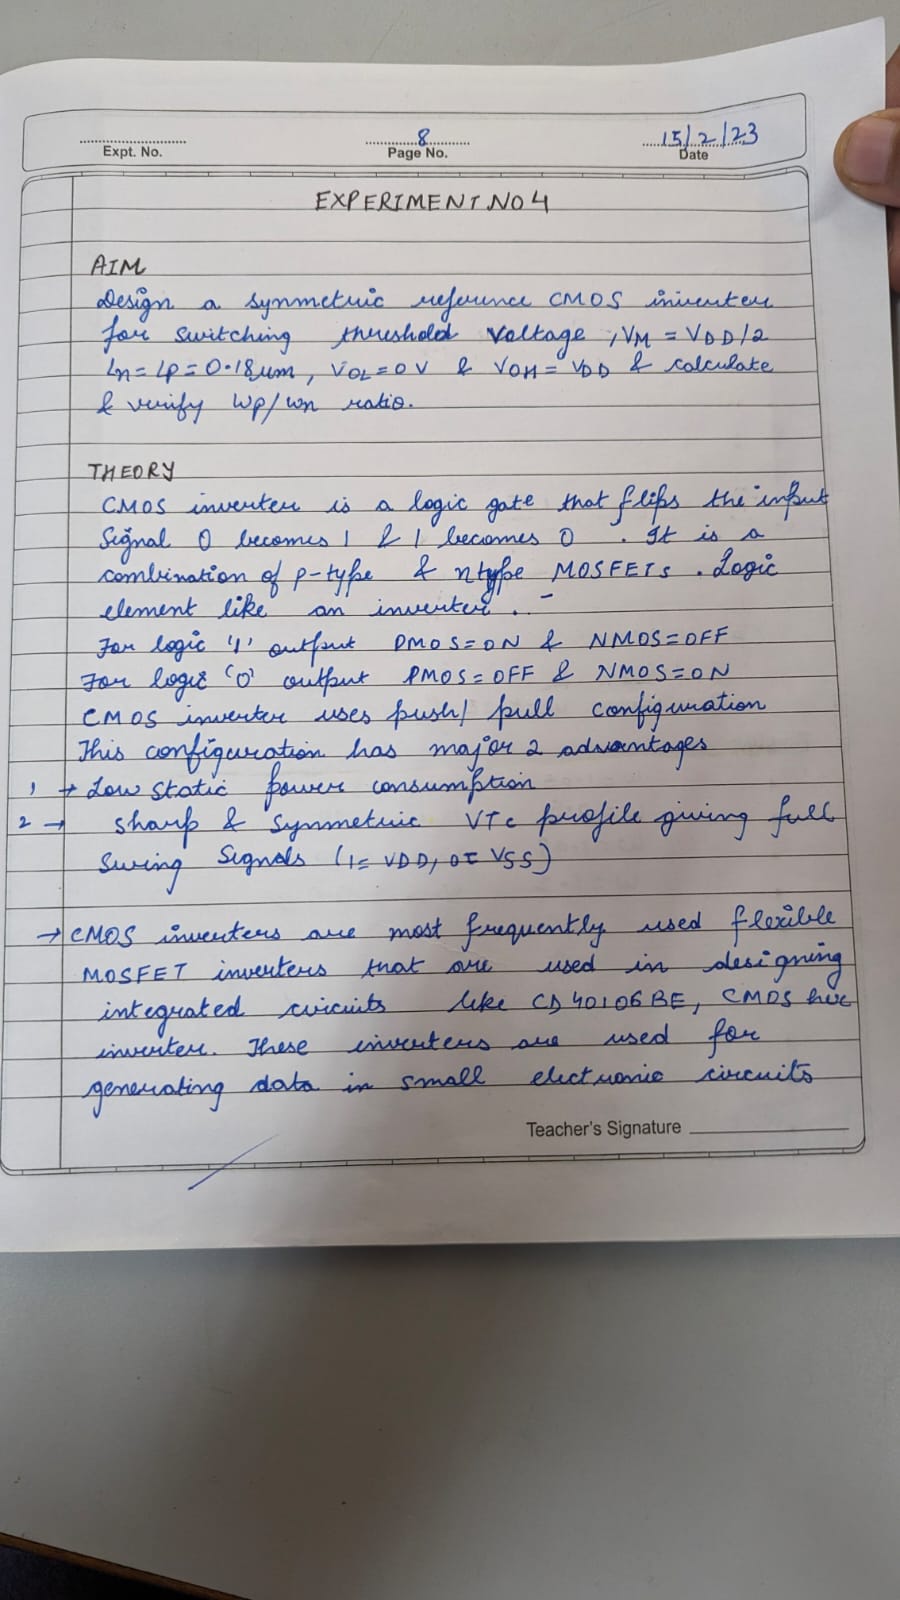 Expt. No.
8
Page No.
15/2/23
Date
EXPERIMENT NO 4
AIM
Design a symmetric reference CMOS inverter
for switching threshold voltage , VM = VDD/2
Ln = Lp = 0.18um, VOL = 0 V & VOH = VDD & calculate
& verify Wp/wn ratio.
THEORY
CMOS inverter is a logic gate that flips the input
Signal 0 becomes 1 & 1 becomes 0 . It is a
combination of p-type & ntype MOSFETs . Logic
element like an inverter .
For logic '1' output PMOS = ON & NMOS = OFF
For logic '0' output PMOS = OFF & NMOS = ON
CMOS inverter uses push/ pull configuration
This configuration has major 2 advantages
1 → Low static power consumption
2 → sharp & symmetric VTC profile giving full
swing signals (1 = VDD, 0 = VSS)
→ CMOS inverters are most frequently used flexible
MOSFET inverters that are used in designing
integrated circuits like CD40106BE, CMOS hex
inverter. These inverters are used for
generating data in small electronic circuits
Teacher's Signature